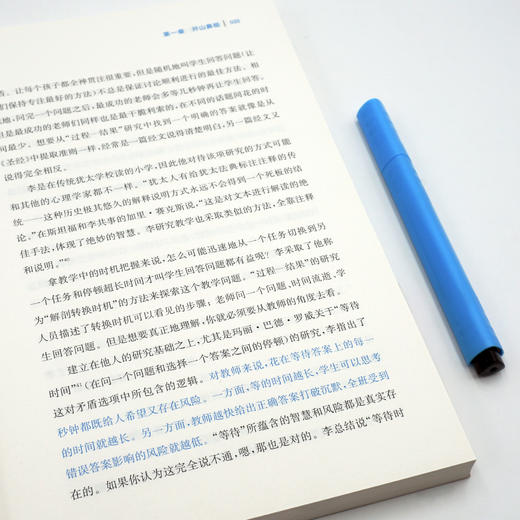 第一章 开山鼻祖
答。让每个孩子都全神贯注很重要，但是随机地叫学生回答问题（让
们保持专注最好的方法）不总是保证讨论顺利进行的最佳方法。相
地，问完一个问题之后，最成功的老师会多等几秒钟再让学生回答。
但是最成功的老师们同样也是最干脆利索的，在不同的话题间花的时
间最少。想要从“过程—结果”研究中找到一个明确的答案就像是从
《圣经》中提取准则一样，经常是一篇经文说得清楚明白，另一篇经文又
说得完全相反。
李是在传统犹太学校读的小学，因此他对待该项研究的方式可能
和其他的心理学家都不一样。“犹太人有给犹太法典标注注释的传
统——这种历史极其悠久的解释说明方式永远不会得到一个死板的结
论。”在斯坦福和李共事的加里·赛克斯说，“这是对文本进行解读的绝
佳手法，体现了绝妙的智慧。李研究教学也采取类似的方法，全靠注释
和说明。”
拿教学中的时机把握来说，怎么可能迅速地从一个任务切换到另
一个任务和停顿超长时间才叫学生回答问题都有益呢？李采取了他称
为“解剖转换时机”的方法来探索这个教学问题。“过程—结果”的研究
人员描述了转换时机可以看见的步骤：老师问一个问题，时间流逝，学
生回答问题。但是想要真正地理解，你就必须要从教师的角度去看。
建立在他人的研究基础之上，尤其是玛丽·巴德·罗威关于“等待
时间”（在问一个问题和选择一个答案之间的停顿）的研究，李指出了
这对矛盾选项中所包含的逻辑。对教师来说，花在等待答案上的每一
秒钟都既给人希望又存在风险。一方面，等的时间越长，学生可以思考
的时间就越长。另一方面，教师越快给出正确答案打破沉默，全班受到
错误答案影响的风险就越低。“等待”所蕴含的智慧和风险都是真实存
在的。如果你认为这完全说不通，嗯，那也是对的。李总结说“等待时